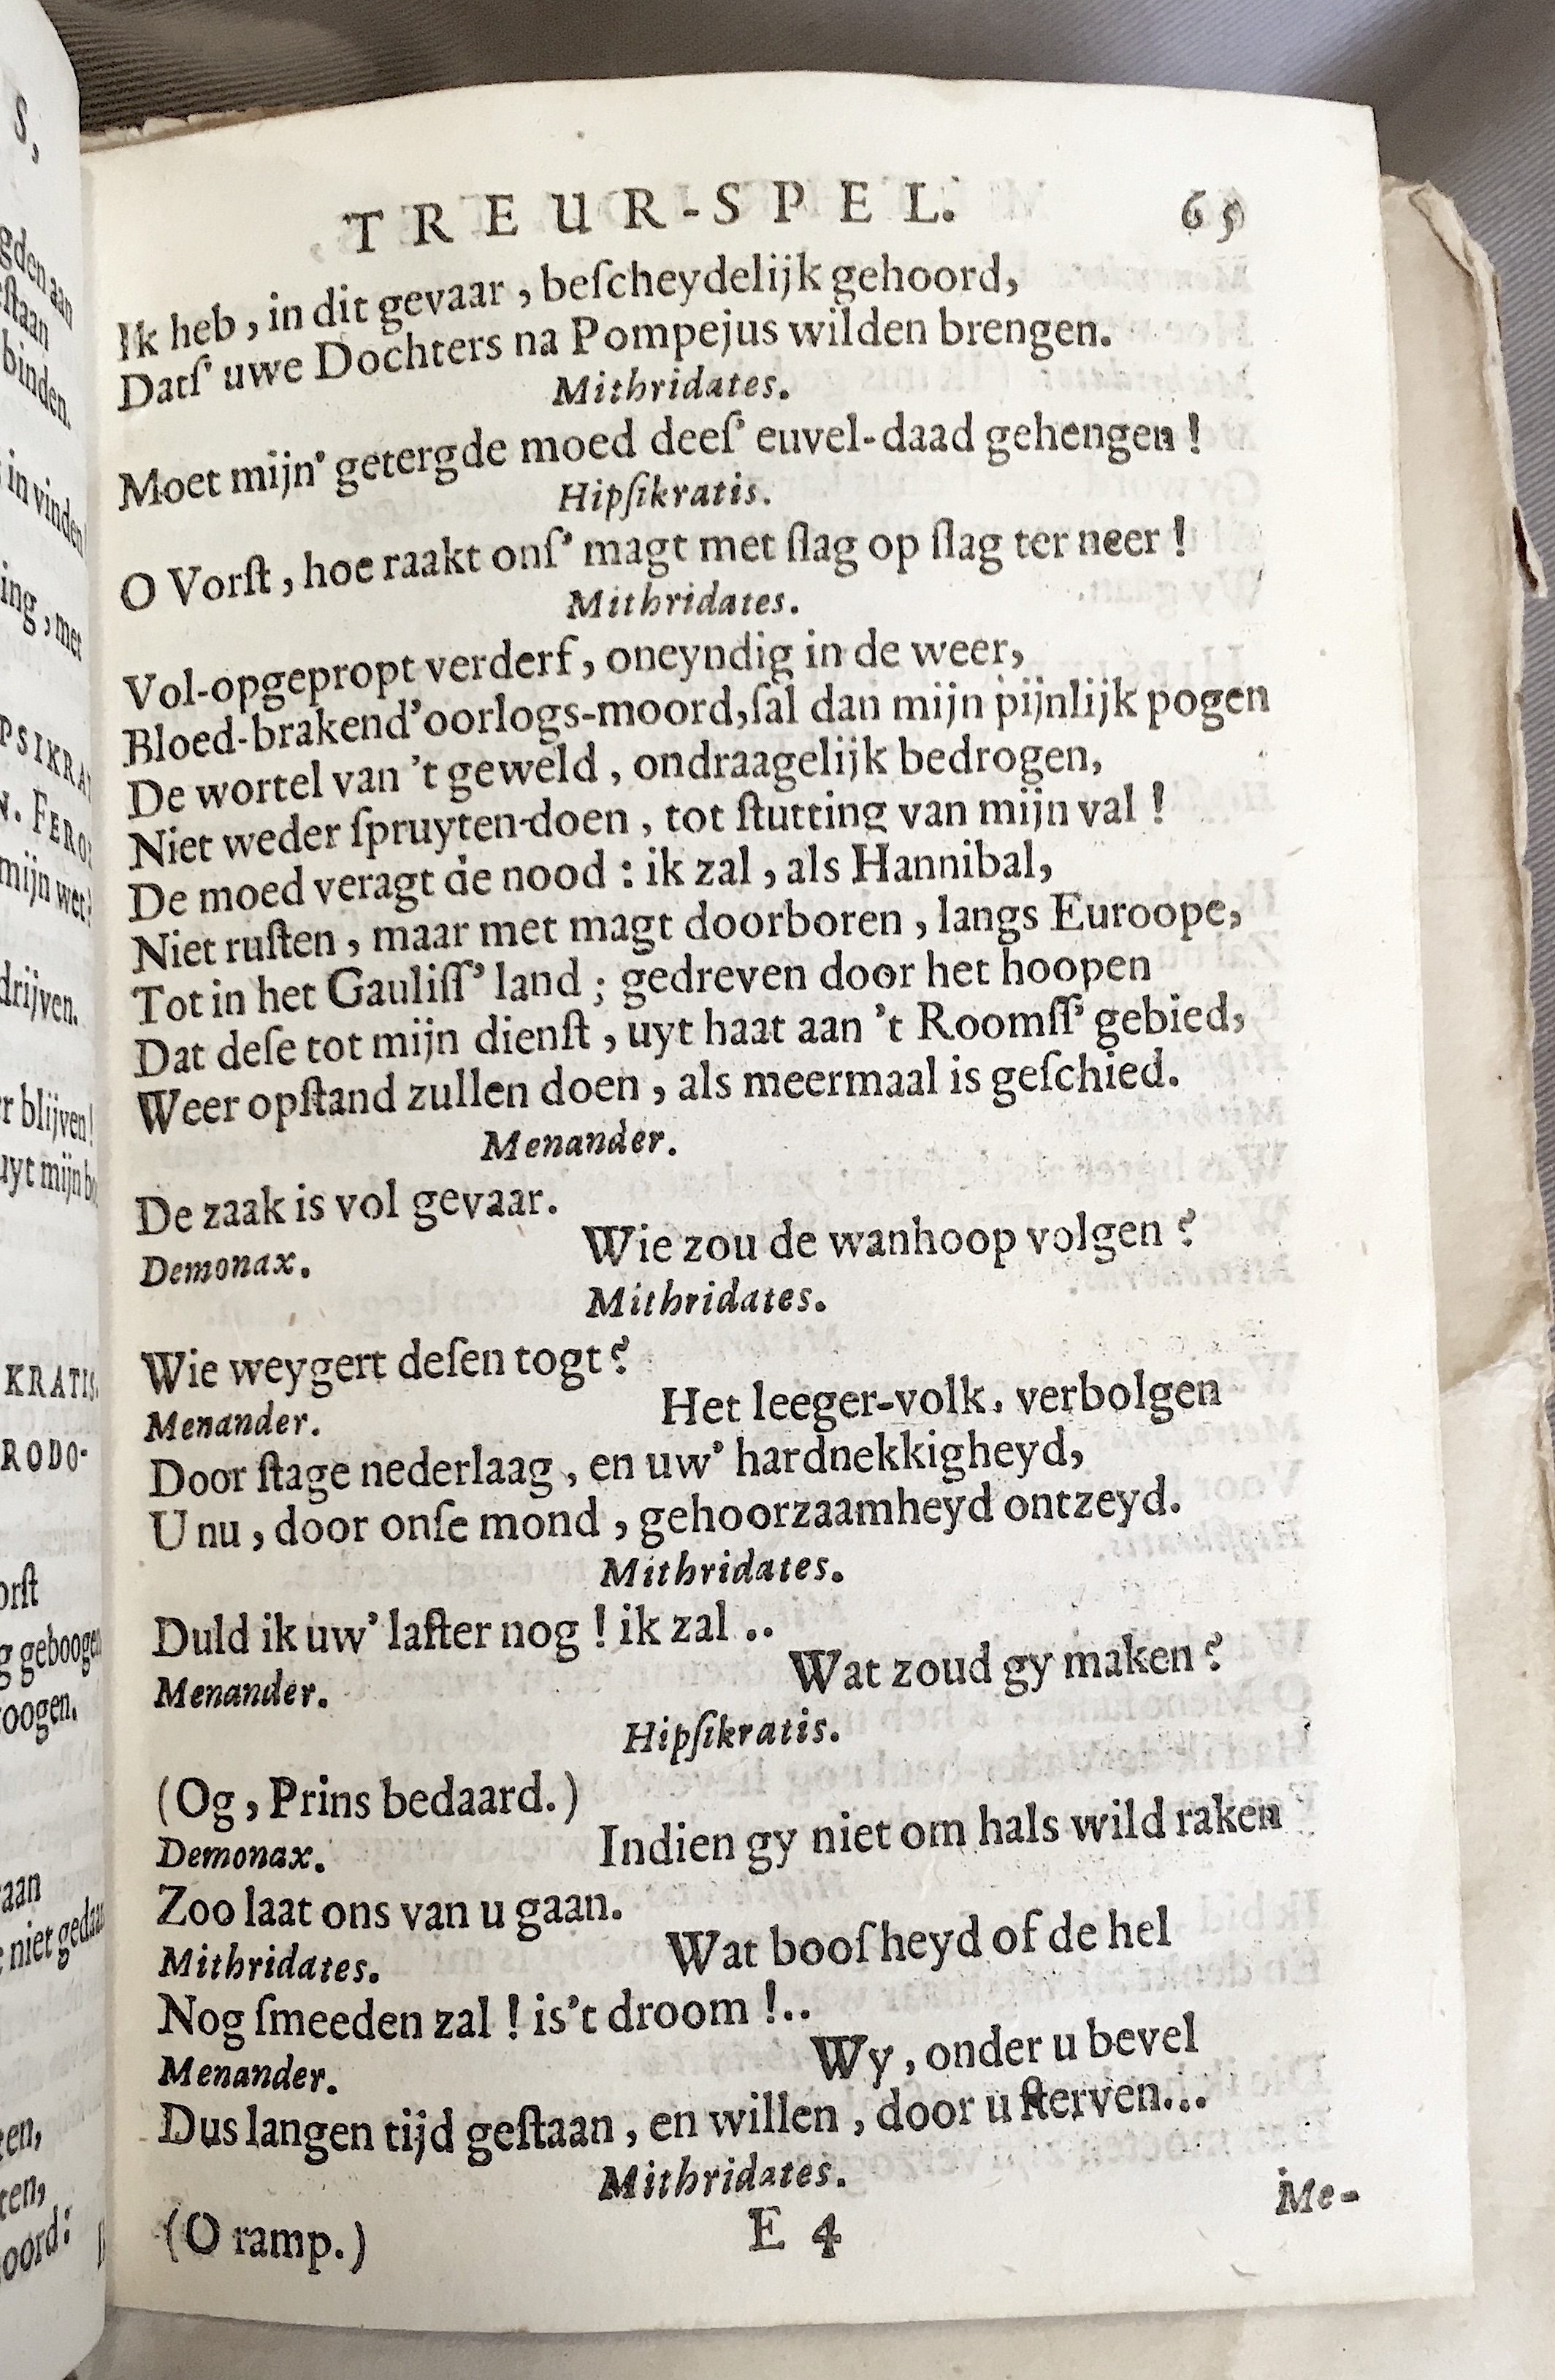 TREUR-SPEL. 65
Ik heb, in dit gevaar, beſcheydelijk gehoord,
Datſ' uwe Dochters na Pompejus wilden brengen.
Mithridates.
Moet mijn' getergde moed deeſ' euvel-daad gehengen!
Hipſikratis.
O Vorſt, hoe raakt onſ' magt met ſlag op ſlag ter neer!
Mithridates.
Vol-opgepropt verderf, oneyndig in de weer,
Bloed-brakend' oorlogs-moord, ſal dan mijn pijnlijk pogen
De wortel van 't geweld, ondraagelijk bedrogen,
Niet weder ſpruyten-doen, tot ſtutting van mijn val!
De moed veragt de nood: ik zal, als Hannibal,
Niet ruſten, maar met magt doorboren, langs Euroope,
Tot in het Gauliſſ' land; gedreven door het hoopen
Dat deſe tot mijn dienſt, uyt haat aan 't Roomſſ' gebied,
Weer opſtand zullen doen, als meermaal is geſchied.
Menander.
De zaak is vol gevaar.
Wie zou de wanhoop volgen?
Demonax.
Mithridates.
Wie weygert deſen togt?
Het leeger-volk, verbolgen
Menander.
Door ſtage nederlaag, en uw' hardnekkigheyd,
U nu, door onſe mond, gehoorzaamheyd ontzeyd.
Mithridates.
Duld ik uw' laſter nog! ik zal ..
Wat zoud gy maken?
Menander.
Hipſikratis.
(Og, Prins bedaard.)
Indien gy niet om hals wild raken
Demonax.
Zoo laat ons van u gaan.
Wat booſheyd of de hel
Mithridates.
Nog ſmeeden zal! is't droom!..
Wy, onder u bevel
Menander.
Dus langen tijd geſtaan, en willen, door u ſterven...
Mithridates.
(O ramp.)
E 4
Me-